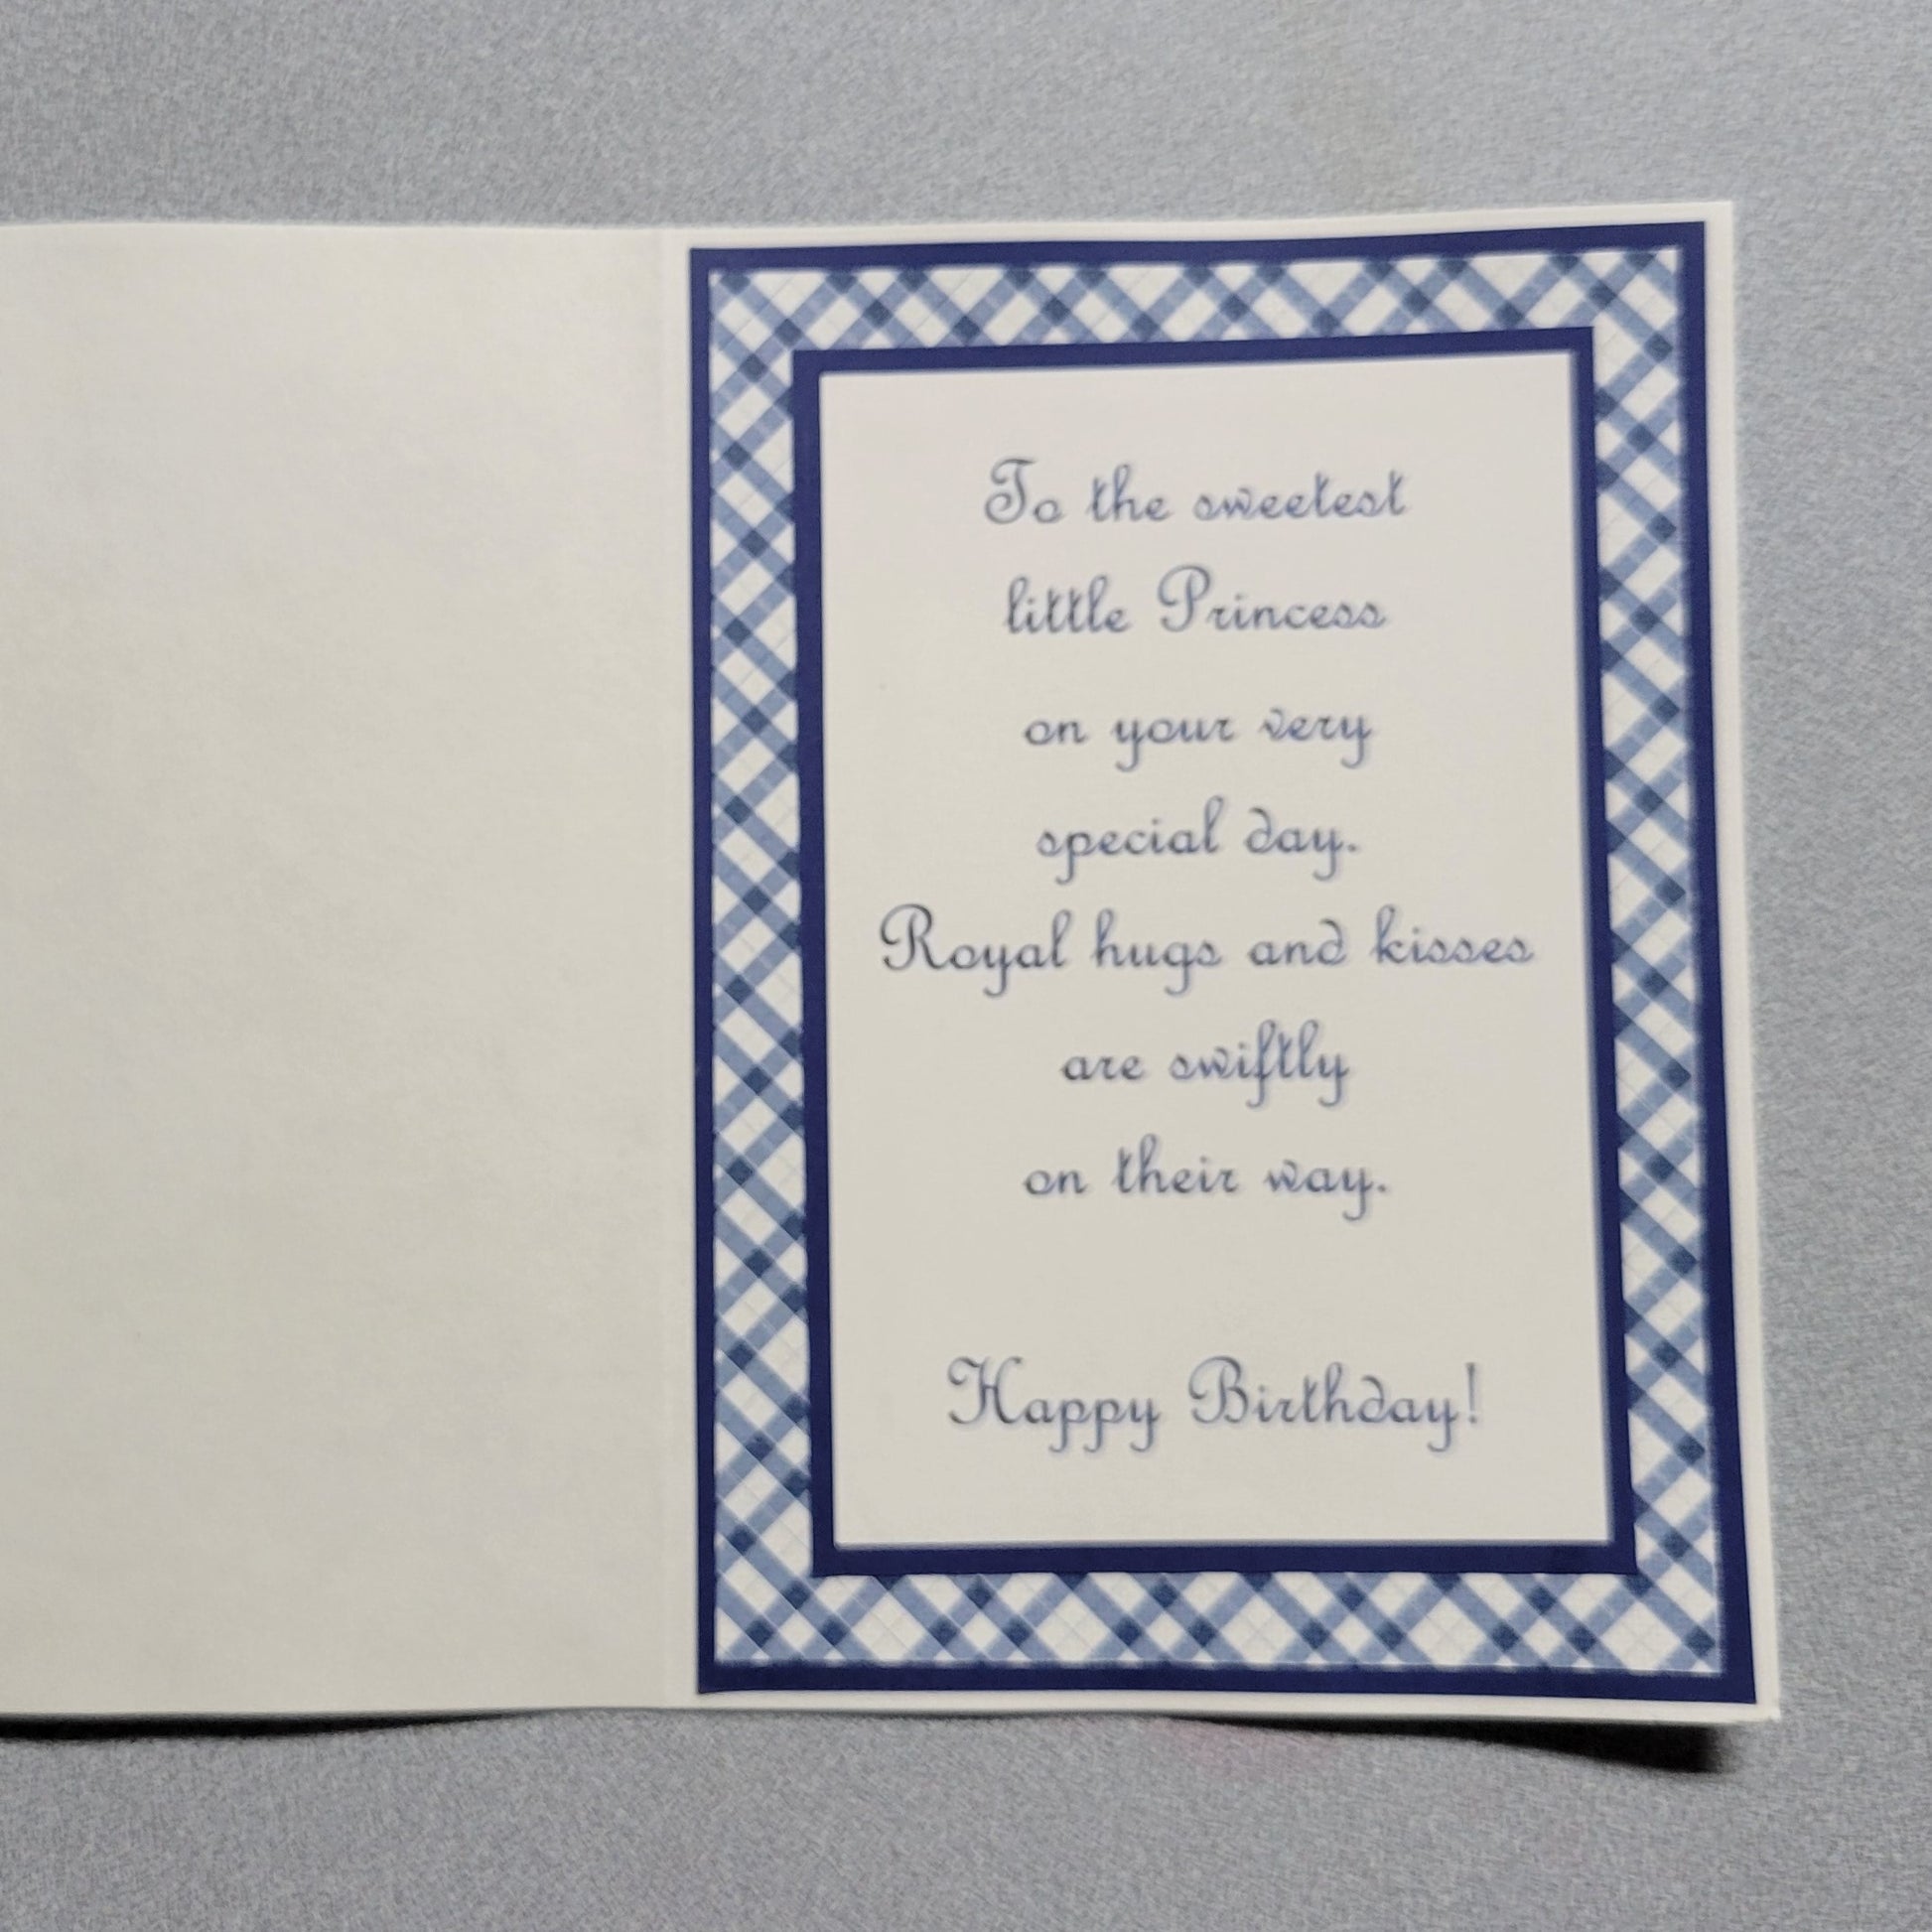 To the sweetest
little Princess
on your very
special day.
Royal hugs and kisses
are swiftly
on their way.
Happy Birthday!